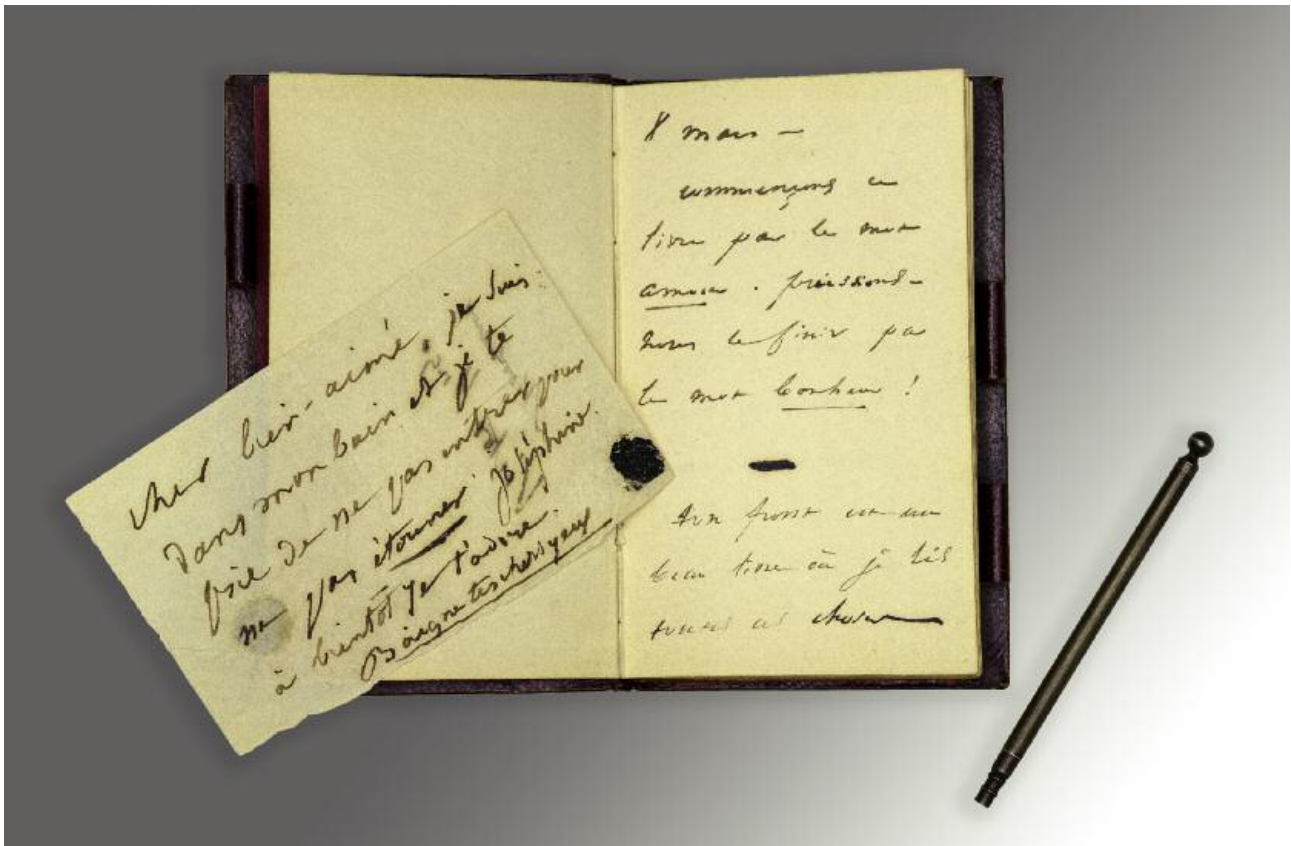 cher bien-aimé, je suis
dans mon bain et je te
prie de ne pas entrer pour
ne pas étonner Joséphine.
à bientôt je t'adore.
Baigne tes chers yeux
8 mars –
commençons ce
livre par le mot
amour. puissions-
nous le finir par
le mot bonheur !
ton front est un
beau livre où je lis
toutes ces choses